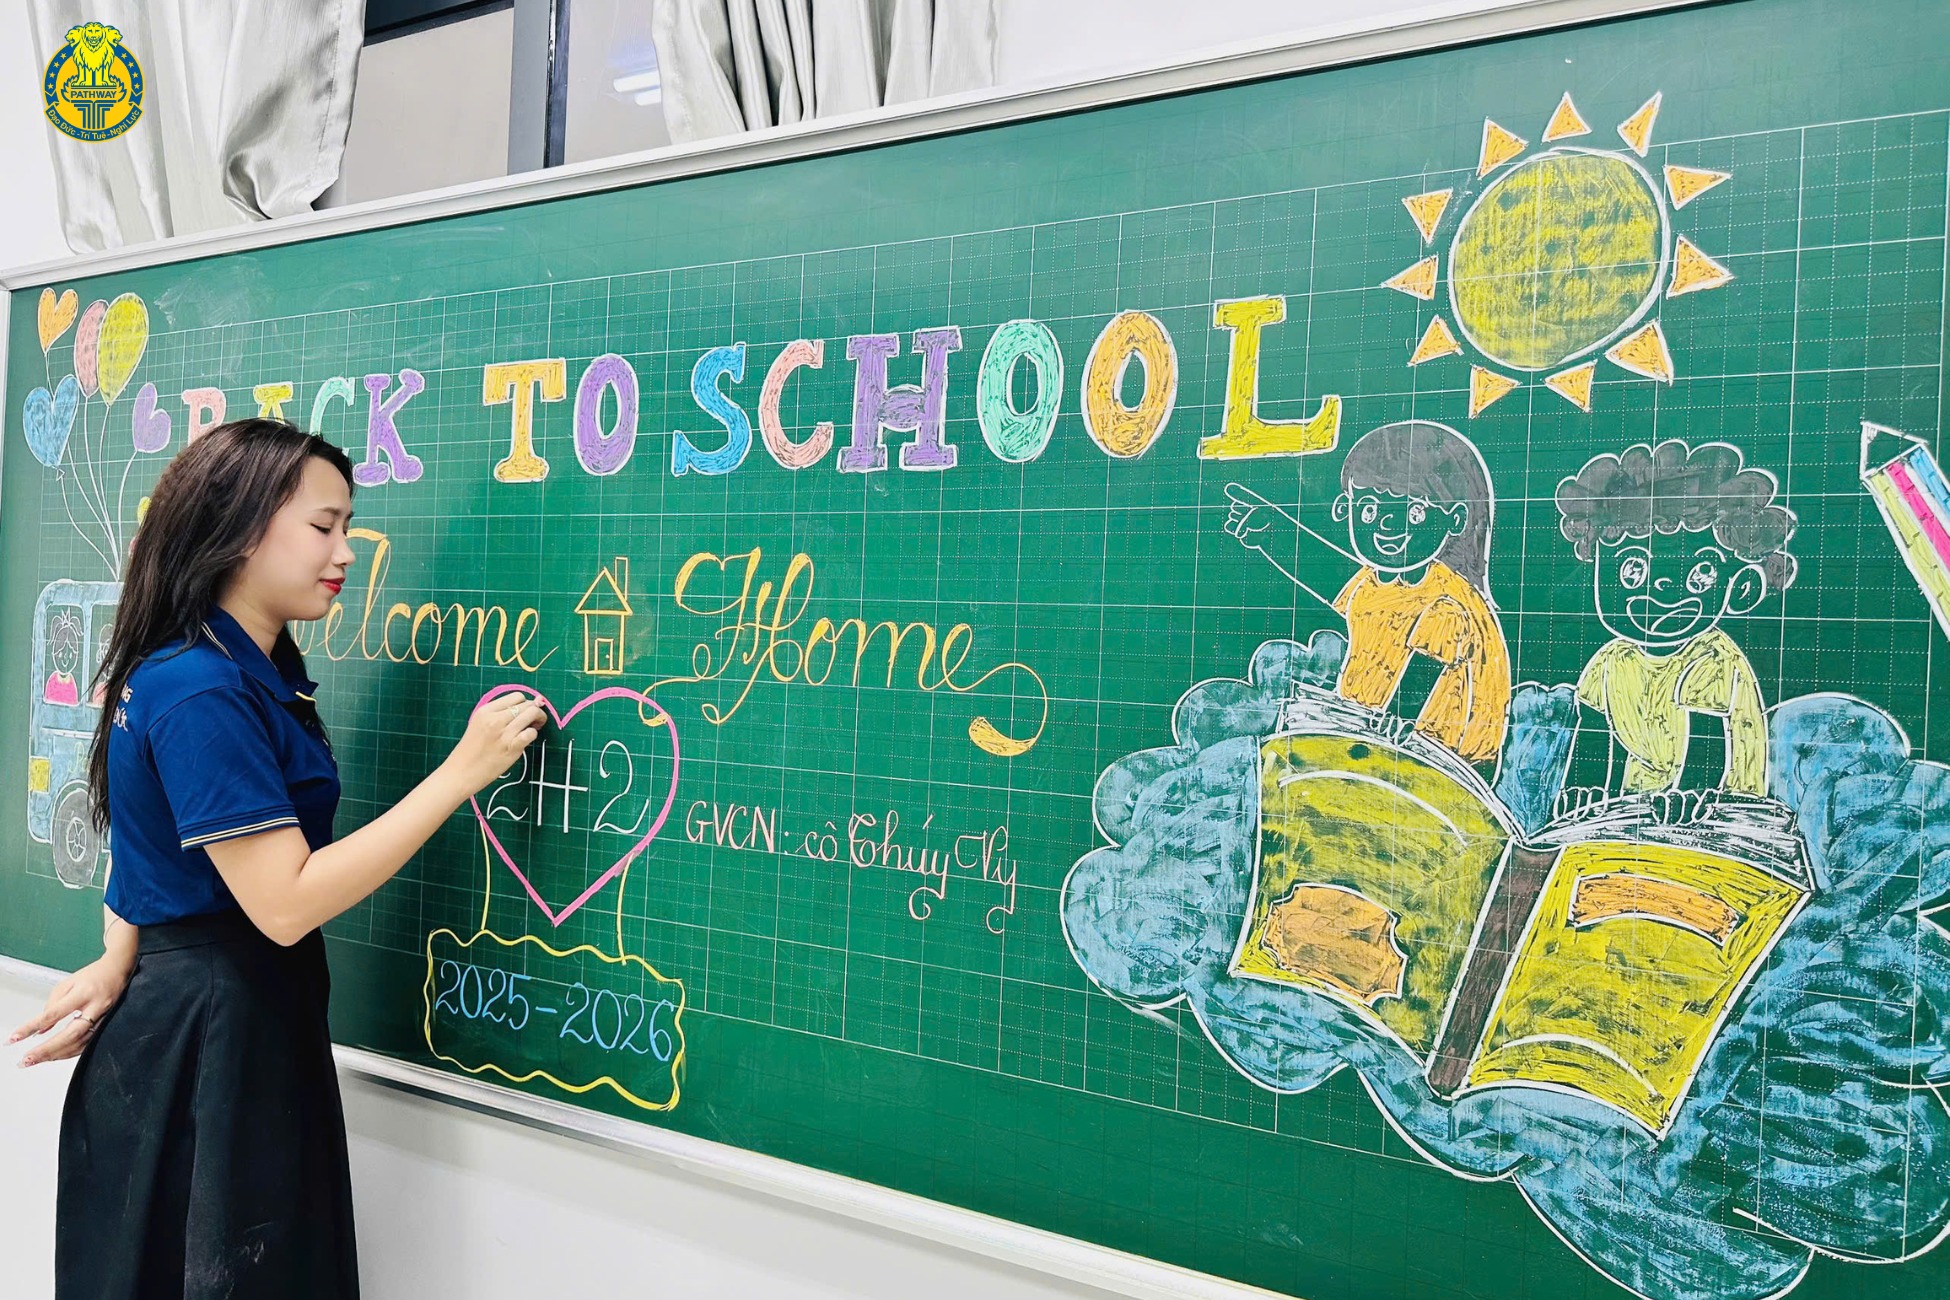 PATHWAY
Đạo Đức - Trí Tuệ - Nghị Lực
BACK TO SCHOOL
Welcome Home
2H2
GVCN: cô Thúy Vy
2025-2026